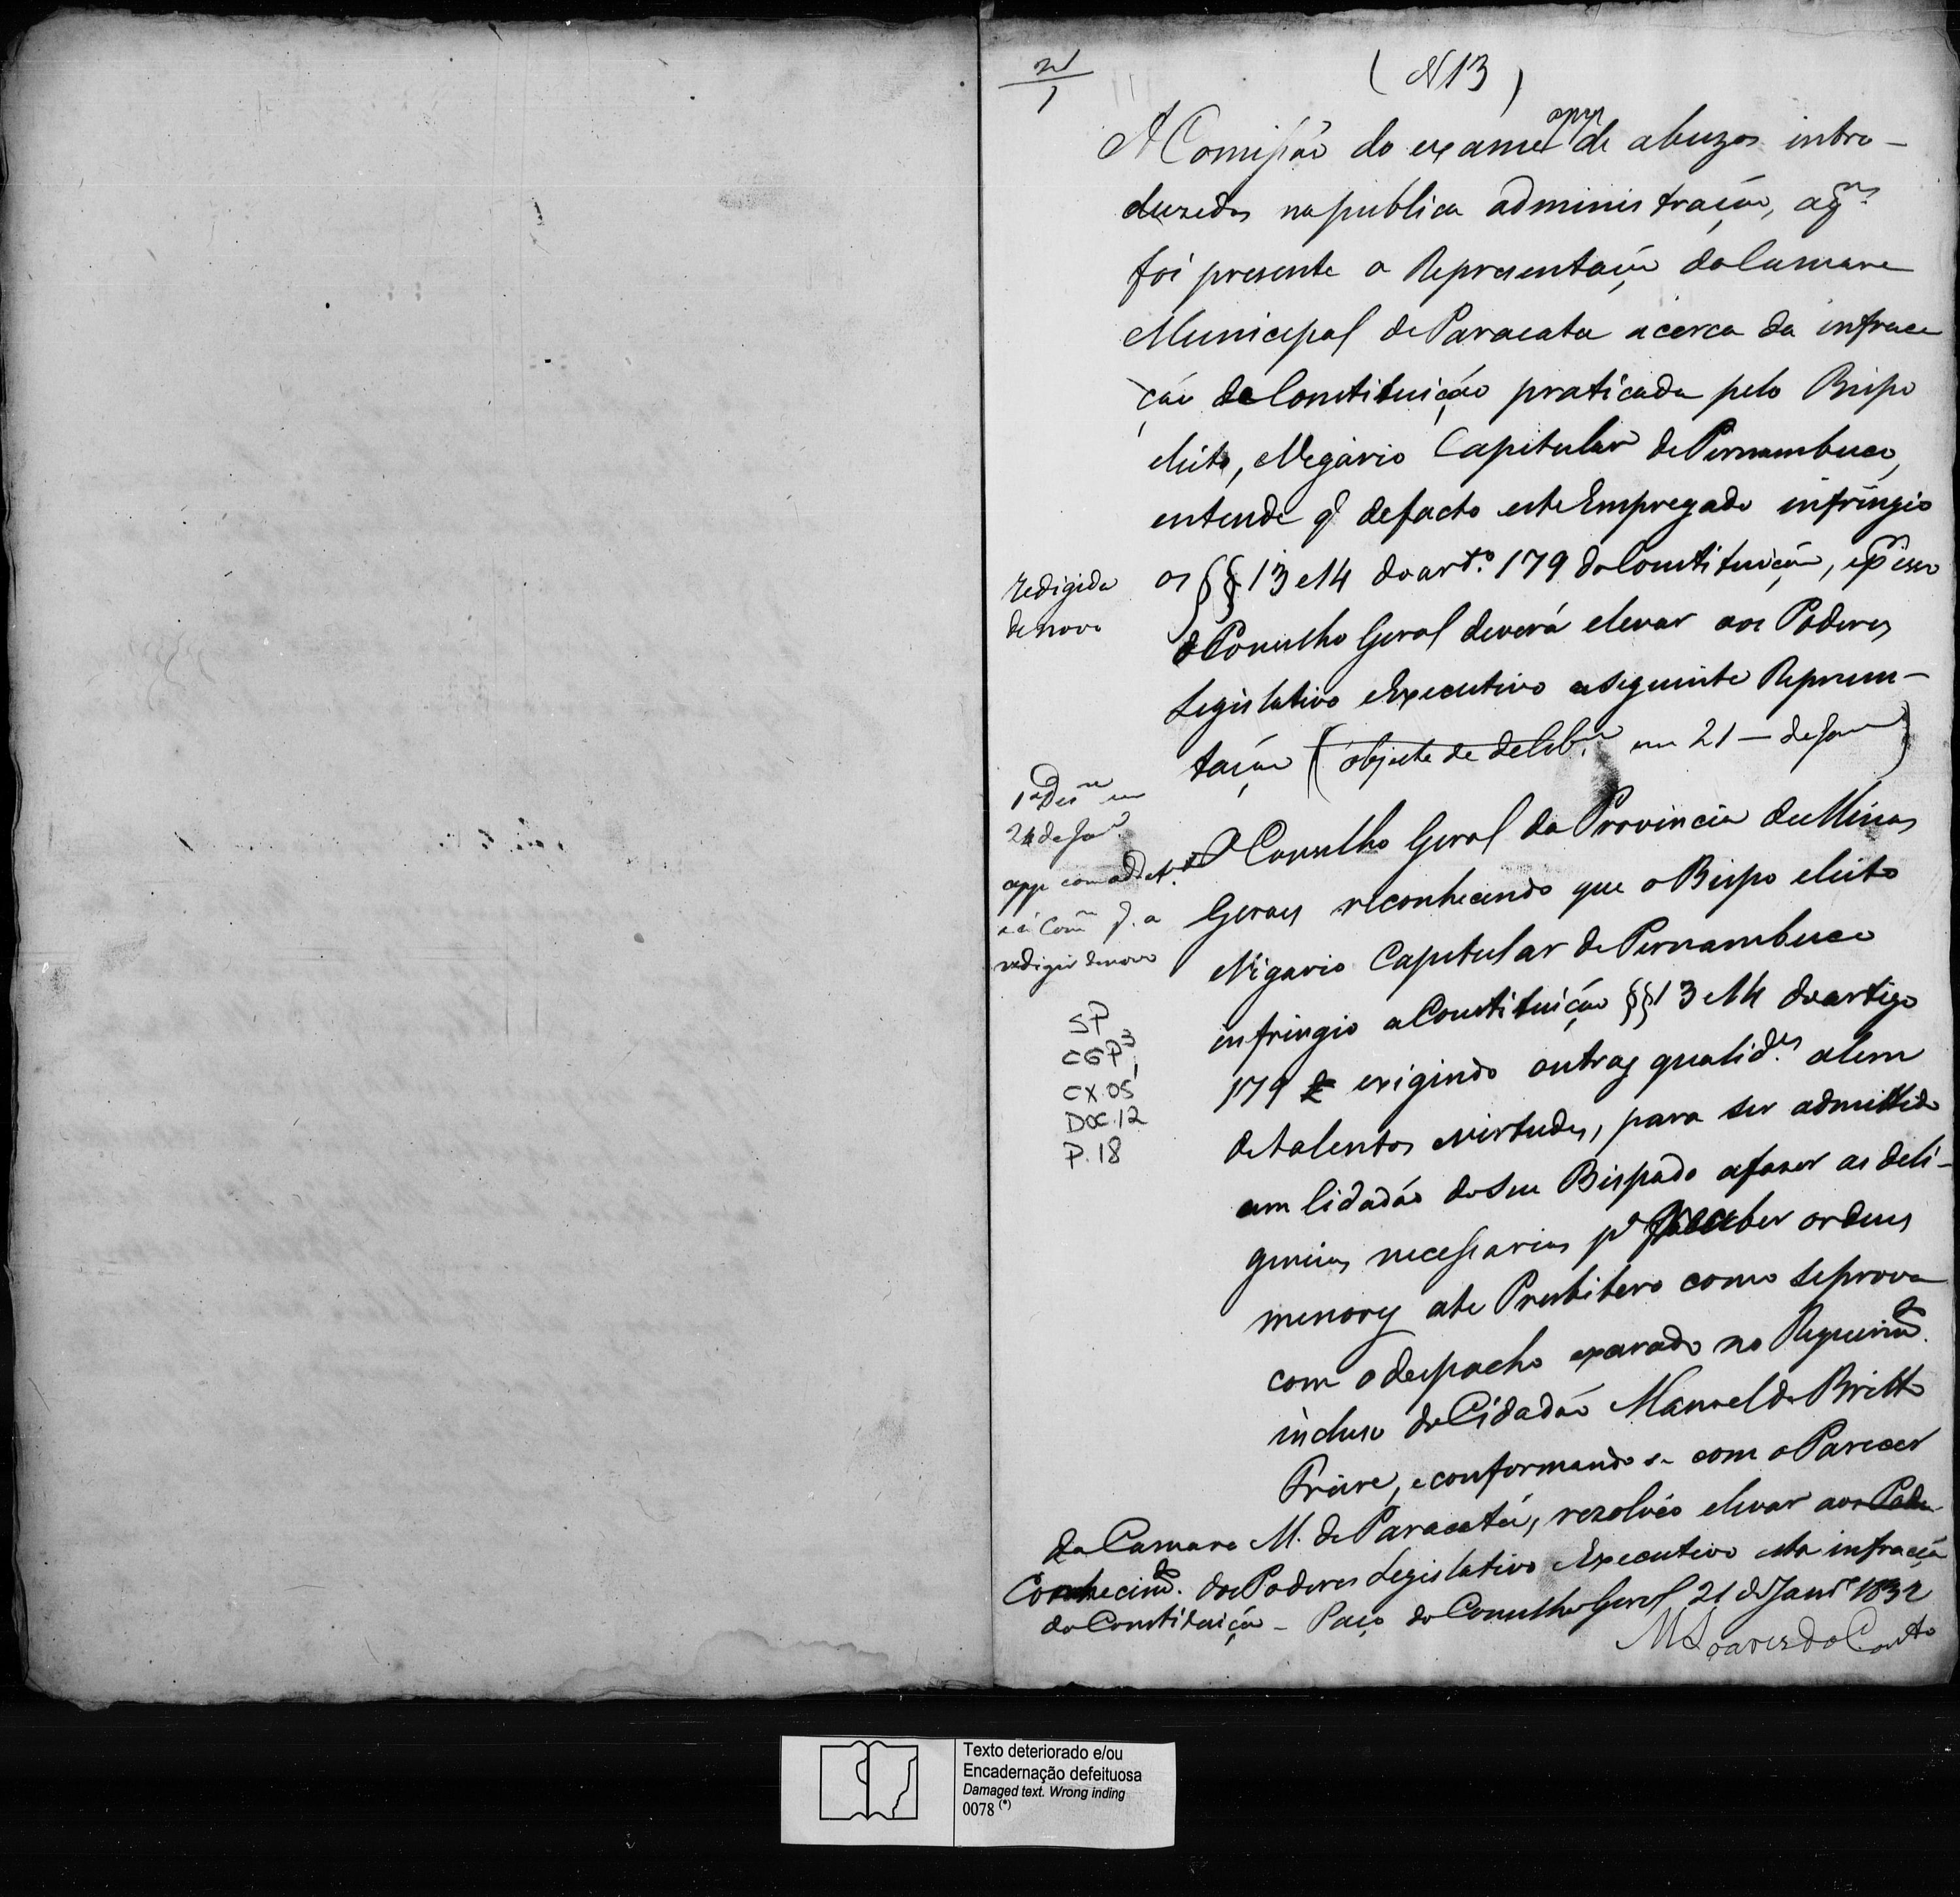 (N 13)
A Comissão do exame de abuzos intro-
duzidos na publica administração, a q.m
foi presente a Representação da Camara
Municipal de Paracatu acerca da infrac
ção da Constituição praticada pelo Bispo
eleito, e Vigario Capitular de Pernambuco,
entende q̃ de facto este Empregado infringio
os §§ 13 e 14 do art.º 179 da Constituição, e p.r isso
o Conselho Geral deverá elevar aos Poderes
Legislativo e Executivo a seguinte Represen-
tação (objecto de delib.m em 21 - de Jan.ro)
O Conselho Geral da Provincia de Minas
Geraes reconhecendo que o Bispo eleito
e Vigario Capitular de Pernambuco
infringio a Constituição §§ 13 e 14 do artigo
179 exigindo outras qualid.es alem
de talentos e virtudes, para ser admittido
um Cidadão do seu Bispado a fazer as deli-
gencias necessarias p.a receber ordens
menores ate Presbitero como se prova
com o despacho exarado no Requerim.to
incluso do Cidadão Manoel de Britto
Freire, e conformando se com o Parecer
da Camara M. de Paracatú, rezolvêo elevar ao
Conhecim.to dos Poderes Legislativo e Executivo esta infracção
da Constituição - Paço do Conselho Geral 21 de Janr.o 1832
M Soares do Couto
redigida
de novo
1.a Dis.m em
24 de Jan.ro
app com addit.to
e á Com.m p.a a
redigir de novo
SP
CGP 3
CX. 05
DOC. 12
P. 18
Texto deteriorado e/ou
Encadernação defeituosa
Damaged text. Wrong inding
0078 (*)